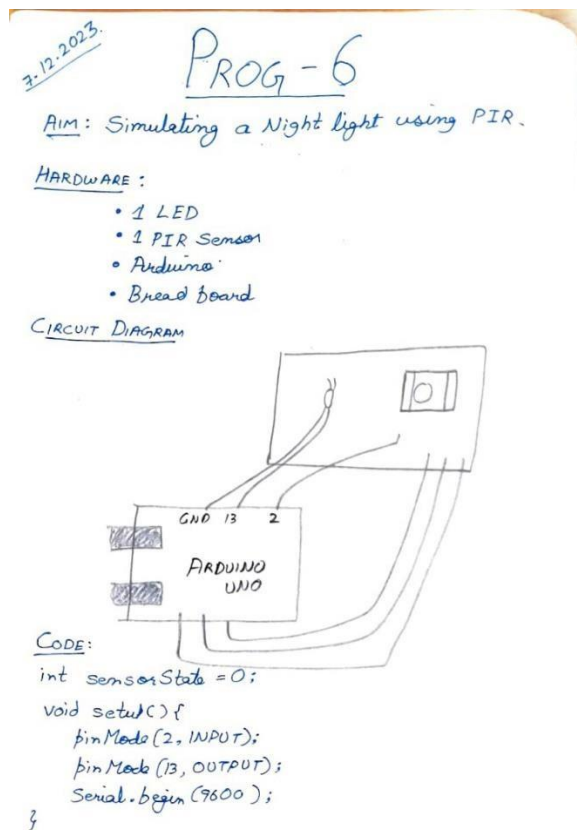 7.12.2023.
PROG-6
AIM: Simulating a Night light using PIR.
HARDWARE:
• 1 LED
• 1 PIR Sensor
• Arduino
• Bread board
CIRCUIT DIAGRAM
GND 13 2
ARDUINO
UNO
CODE:
int sensorState = 0;
void setup() {
pinMode(2, INPUT);
pinMode(13, OUTPUT);
Serial.begin(9600);
}